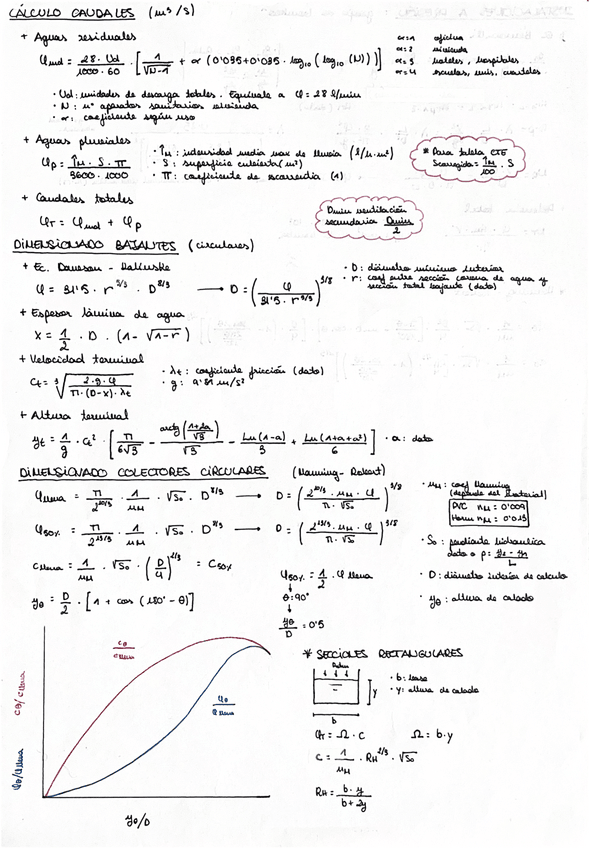 CÁLCULO CAUDALES (m³/s)
+ Aguas residuales
Qund = 28·Ud / 1000·60 · [ 1/√N-1 + α (0'035+0'035·log₁₀(log₁₀(N))) ]
α=1 oficina
α=2 vivienda
α=3 hoteles, hospitales
α=4 escuelas, univ, cuarteles
· Ud: unidades de descarga totales. Equivale a Q=28 l/min
· N: nº aparatos sanitarios vivienda
· α: coeficiente según uso
+ Aguas pluviales
Qp = ÎM · S · π / 3600·1000
· ÎM: indensidad media max de lluvia (l/h·m²)
· S: superficie cubierta (m²)
· π: coeficiente de escorrentía (1)
* Para tabla CTE
Scorregida = ÎM/100 · S
+ Caudales totales
QT = Qund + Qp
Dmin ventilación
secundaria Dmin/2
DIMENSIONADO BAJANTES (circulares)
+ Ec. Dawson - Kalinske
Q = 31'5 · r^5/3 · D^8/3 → D = (Q / 31'5 · r^5/3)^3/8
· D: diámetro mínimo interior
· r: coef entre sección corona de agua y
sección total bajante (dato)
+ Espesor lámina de agua
x = 1/2 · D · (1-√1-r)
+ Velocidad terminal
Ct = ³√2·g·Q / π·(D-x)·λt
· λt: coeficiente fricción (dato)
· g: 9'81 m/s²
+ Altura terminal
yt = 1/g · Ct² · [ π/6√3 - arctg(1+2a/√3)/√3 - Ln(1-a)/3 + Ln(1+a+a²)/6 ] · a: dato
DIMENSIONADO COLECTORES CIRCULARES (Manning-
Qllena = π/2^10/3 · 1/nM · √So · D^8/3 → D = (2^10/3 · nM · Q / π·√So)^3/8
· nM: coef Manning
(depende del material)
PVC nM = 0'009
Horm nM = 0'013
Q50% = π/2^13/3 · 1/nM · √So · D^8/3 → D = (2^13/3 · nM · Q / π·√So)^3/8
· So: pendiente hidraulica
dato o p =
Cllena = 1/nM · √So · (D/4)^2/3 = C50%
Q50% = 1/2 · Q llena
↓
θ=90°
↓
yθ/D = 0'5
· D: diámetro interior de calculo
yθ = D/2 · [1 + cos (180° - θ)]
· yθ: altura de calado
Cθ/Cllena
Qθ/Qllena
Cθ/Cllena
Qθ/Qllena
yθ/D
* SECCIONES RECTANGULARES
· b: base
· y: altura de calado
y
b
QT = Ω · C
Ω = b·y
C = 1/nM · RH^2/3 · √So
RH = b·y / b+2y